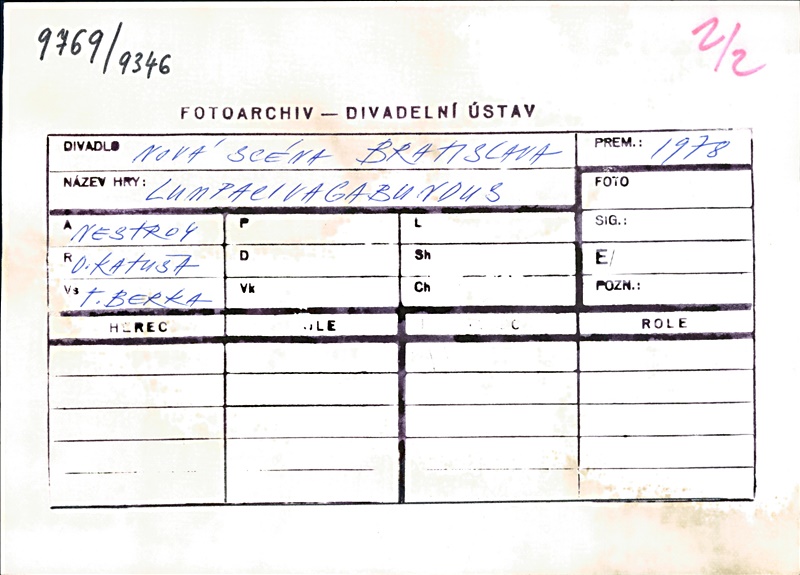 9769/9346
2/2
FOTOARCHIV — DIVADELNÍ ÚSTAV
DIVADLO NOVÁ SCÉNA BRATISLAVA PREM.: 1978
NÁZEV HRY: LUMPACIVAGABUNDUS FOTO
A NESTROY P L SIG.:
R O. KATUŠA D Sh E/
Vs T. BERKA Vk Ch POZN.:
HEREC ROLE